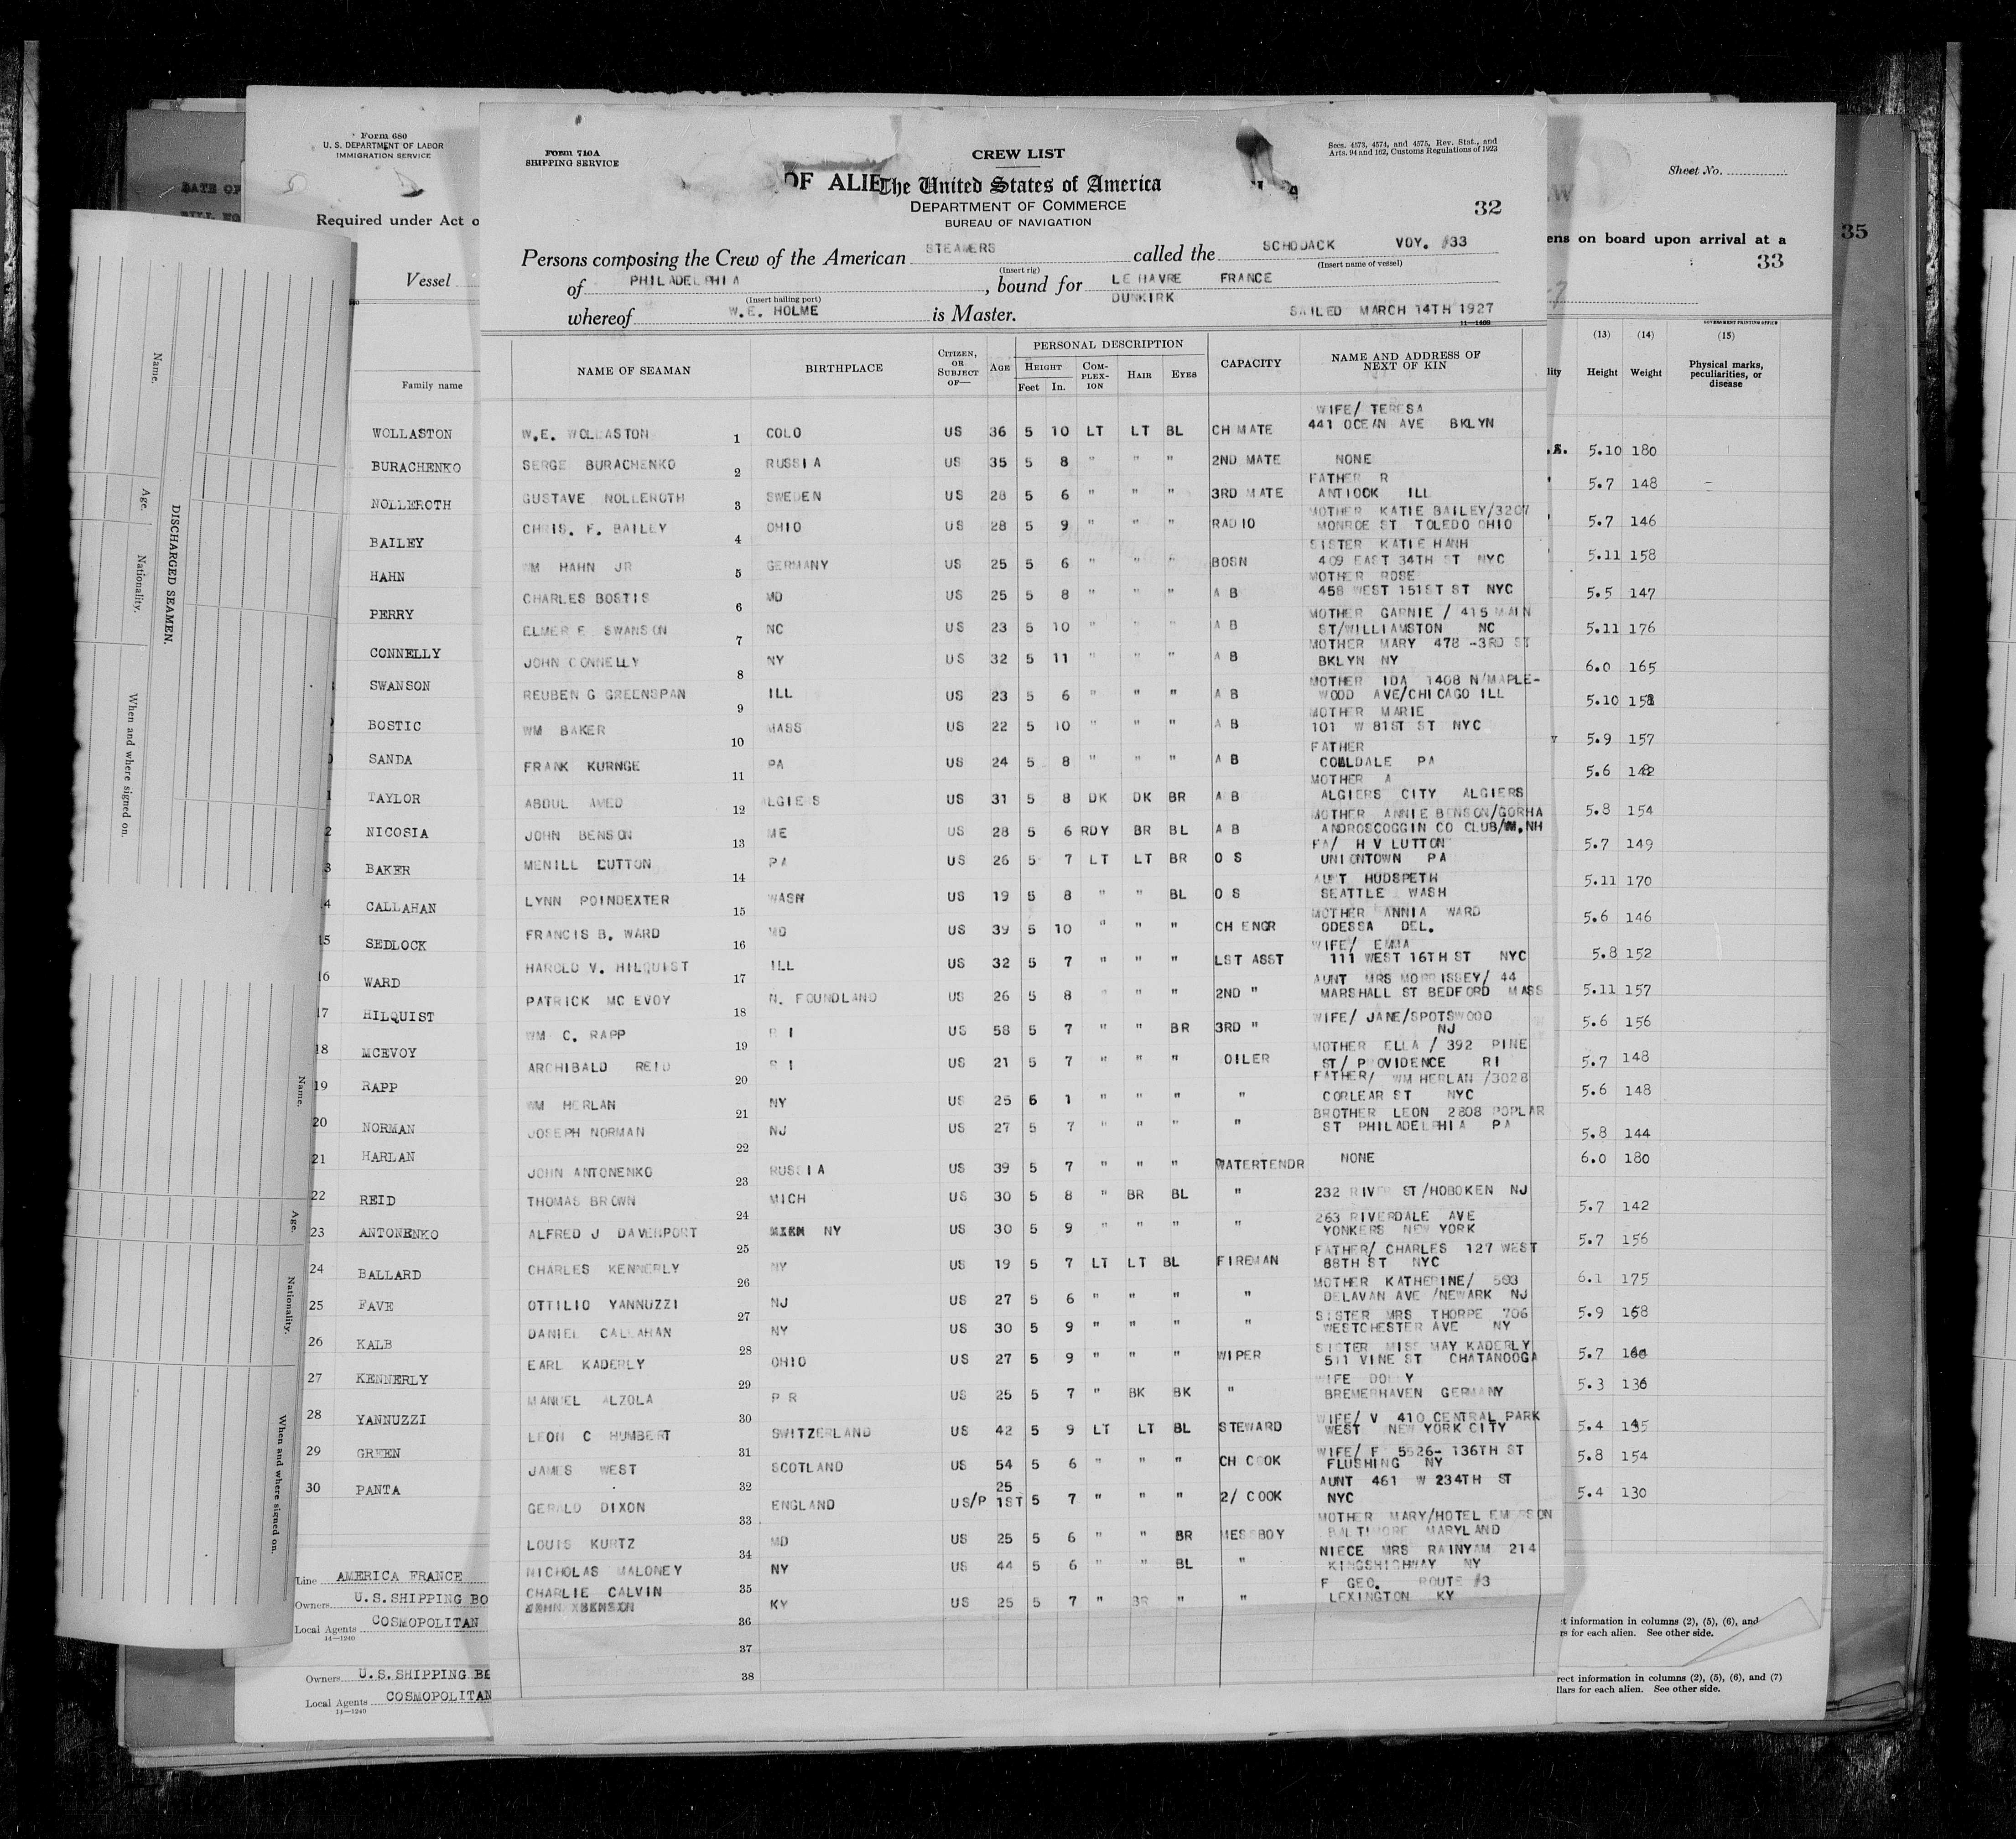 Form 710A
SHIPPING SERVICE
CREW LIST
Secs. 4573, 4574, and 4575, Rev. Stat., and
Arts. 94 and 162, Customs Regulations of 1923
OF ALIE
The United States of America
DEPARTMENT OF COMMERCE
BUREAU OF NAVIGATION
32
Persons composing the Crew of the American STEAMERS called the SCHODACK VOY. #33
(Insert rig) (Insert name of vessel)
of PHILADELPHIA, bound for LE HAVRE FRANCE
(Insert hailing port) DUNKIRK
whereof W.E. HOLME is Master. SAILED MARCH 14TH 1927
11—1408
NAME OF SEAMAN BIRTHPLACE CITIZEN, OR SUBJECT OF— AGE PERSONAL DESCRIPTION CAPACITY NAME AND ADDRESS OF NEXT OF KIN
HEIGHT Feet In. COMPLEXION HAIR EYES
W.E. WOLLASTON 1 COLO US 36 5 10 LT LT BL CH MATE WIFE/ TERESA 441 OCEAN AVE BKLYN
SERGE BURACHENKO 2 RUSSIA US 35 5 8 " " " 2ND MATE NONE
GUSTAVE NOLLEROTH 3 SWEDEN US 28 5 6 " " " 3RD MATE FATHER R ANTIOOK ILL
CHRIS. F. BAILEY 4 OHIO US 28 5 9 " " " RADIO MOTHER KATIE BAILEY/3207 MONROE ST TOLEDO OHIO
WM HAHN JR 5 GERMANY US 25 5 6 " " " BOSN SISTER KATIE HANH 409 EAST 34TH ST NYC
CHARLES BOSTIS 6 MD US 25 5 8 " " " A B MOTHER ROSE 458 WEST 151ST ST NYC
ELMER E SWANSON 7 NC US 23 5 10 " " " A B MOTHER GARNIE / 415 MAIN ST/WILLIAMSTON NC
JOHN CONNELLY 8 NY US 32 5 11 " " " A B MOTHER MARY 478 -3RD ST BKLYN NY
REUBEN G GREENSPAN 9 ILL US 23 5 6 " " " A B MOTHER IDA 1408 N/MAPLE- WOOD AVE/CHICAGO ILL
WM BAKER 10 MASS US 22 5 10 " " " A B MOTHER MARIE 101 W 81ST ST NYC
FRANK KURNGE 11 PA US 24 5 8 " " " A B FATHER COALDALE PA
ABDUL AMED 12 ALGIERS US 31 5 8 DK DK BR A B MOTHER A ALGIERS CITY ALGIERS
JOHN BENSON 13 ME US 28 5 6 RDY BR BL A B MOTHER ANNIE BENSON/GORHA ANDROSCOGGIN CO CLUB/M.NH
MENILL LUTTON 14 PA US 26 5 7 LT LT BR O S FA/ H V LUTTON UNIONTOWN PA
LYNN POINDEXTER 15 WASN US 19 5 8 " " BL O S AUNT HUDSPETH SEATTLE WASH
FRANCIS B. WARD 16 MD US 39 5 10 " " " CH ENGR MOTHER ANNIA WARD ODESSA DEL.
HAROLD V. HILQUIST 17 ILL US 32 5 7 " " " LST ASST WIFE/ EMMA 111 WEST 16TH ST NYC
PATRICK MC EVOY 18 N. FOUNDLAND US 26 5 8 " " " 2ND " AUNT MRS MORRISSEY/ 44 MARSHALL ST BEDFORD MASS
WM C. RAPP 19 R I US 58 5 7 " " BR 3RD " WIFE/ JANE/SPOTSWOOD NJ
ARCHIBALD REID 20 R I US 21 5 7 " " " OILER MOTHER ELLA / 392 PINE ST/ PROVIDENCE RI
WM HERLAN 21 NY US 25 6 1 " " " " FATHER/ WM HERLAN /3028 CORLEAR ST NYC
JOSEPH NORMAN 22 NJ US 27 5 7 " " " " BROTHER LEON 2808 POPLAR ST PHILADELPHIA PA
JOHN ANTONENKO 23 RUSSIA US 39 5 7 " " " WATERTENDR NONE
THOMAS BROWN 24 MICH US 30 5 8 " BR BL " 232 RIVER ST/HOBOKEN NJ
ALFRED J DAVENPORT 25 NY US 30 5 9 " " " " 263 RIVERDALE AVE YONKERS NEW YORK
CHARLES KENNERLY 26 NY US 19 5 7 LT LT BL FIREMAN FATHER/ CHARLES 127 WEST 88TH ST NYC
OTTILIO YANNUZZI 27 NJ US 27 5 6 " " " " MOTHER KATHERINE/ 503 DELAVAN AVE /NEWARK NJ
DANIEL CALLAHAN 28 NY US 30 5 9 " " " " SISTER MRS THORPE 706 WESTCHESTER AVE NY
EARL KADERLY 29 OHIO US 27 5 9 " " " WIPER SISTER MISS MAY KADERLY 511 VINE ST CHATANOOGA
MANUEL ALZOLA 30 P R US 25 5 7 " BK BK " WIFE DOLLY BREMERHAVEN GERMANY
LEON C HUMBERT 31 SWITZERLAND US 42 5 9 LT LT BL STEWARD WIFE/ V 410 CENTRAL PARK WEST NEW YORK CITY
JAMES WEST 32 SCOTLAND US 54 5 6 " " " CH COOK WIFE/ F 5526- 136TH ST FLUSHING NY
GERALD DIXON 33 ENGLAND US/P 1ST 25 5 7 " " " 2/ COOK AUNT 461 W 234TH ST NYC
LOUIS KURTZ 34 MD US 25 5 6 " " BR MESSBOY MOTHER MARY/HOTEL EMERSON BALTIMORE MARYLAND
NICHOLAS MALONEY 35 NY US 44 5 6 " " BL " NIECE MRS RAINYAM 214 KINGSHIGHWAY NY
CHARLIE CALVIN 36 KY US 25 5 7 " BR " " F GEO. ROUTE #3 LEXINGTON KY
37
38
Form 680
U. S. DEPARTMENT OF LABOR
IMMIGRATION SERVICE
Required under Act o
Vessel
Family name
WOLLASTON
BURACHENKO
NOLLEROTH
BAILEY
HAHN
PERRY
CONNELLY
SWANSON
BOSTIC
SANDA
TAYLOR
NICOSIA
BAKER
CALLAHAN
SEDLOCK
WARD
HILQUIST
MCEVOY
19 RAPP
20 NORMAN
21 HARLAN
22 REID
23 ANTONENKO
24 BALLARD
25 FAVE
26 KALB
27 KENNERLY
28 YANNUZZI
29 GREEN
30 PANTA
Line AMERICA FRANCE
Owners U.S.SHIPPING BO
Local Agents COSMOPOLITAN
14—1240
Owners U.S.SHIPPING BE
Local Agents COSMOPOLITAN
14—1240
DATE OF
DISCHARGED SEAMEN.
Name. Age. Nationality. When and where signed on.
Name. Age. Nationality. When and where signed on.
Sheet No.
ens on board upon arrival at a
33
35
GOVERNMENT PRINTING OFFICE
(13) (14) (15)
Height Weight Physical marks, peculiarities, or disease
5.10 180
5.7 148
5.7 146
5.11 158
5.5 147
5.11 176
6.0 165
5.10
5.9 157
5.6
5.8 154
5.7 149
5.11 170
5.6 146
5.8 152
5.11 157
5.6 156
5.7 148
5.6 148
5.8 144
6.0 180
5.7 142
5.7 156
6.1 175
5.9
5.7
5.3 136
5.4
5.8 154
5.4 130
ct information in columns (2), (5), (6), and
rs for each alien. See other side.
rect information in columns (2), (5), (6), and (7)
llars for each alien. See other side.